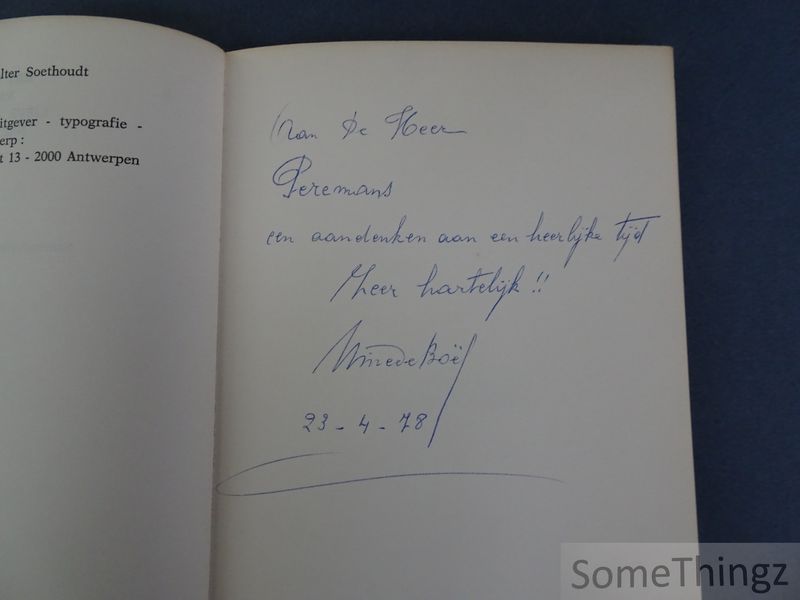 lter Soethoudt
itgever - typografie -
erp :
t 13 - 2000 Antwerpen
Aan De Heer
Peremans
een aandenken aan een heerlijke tijd
Zeer hartelijk !!
de Boël
23 - 4 - 78
SomeThingz